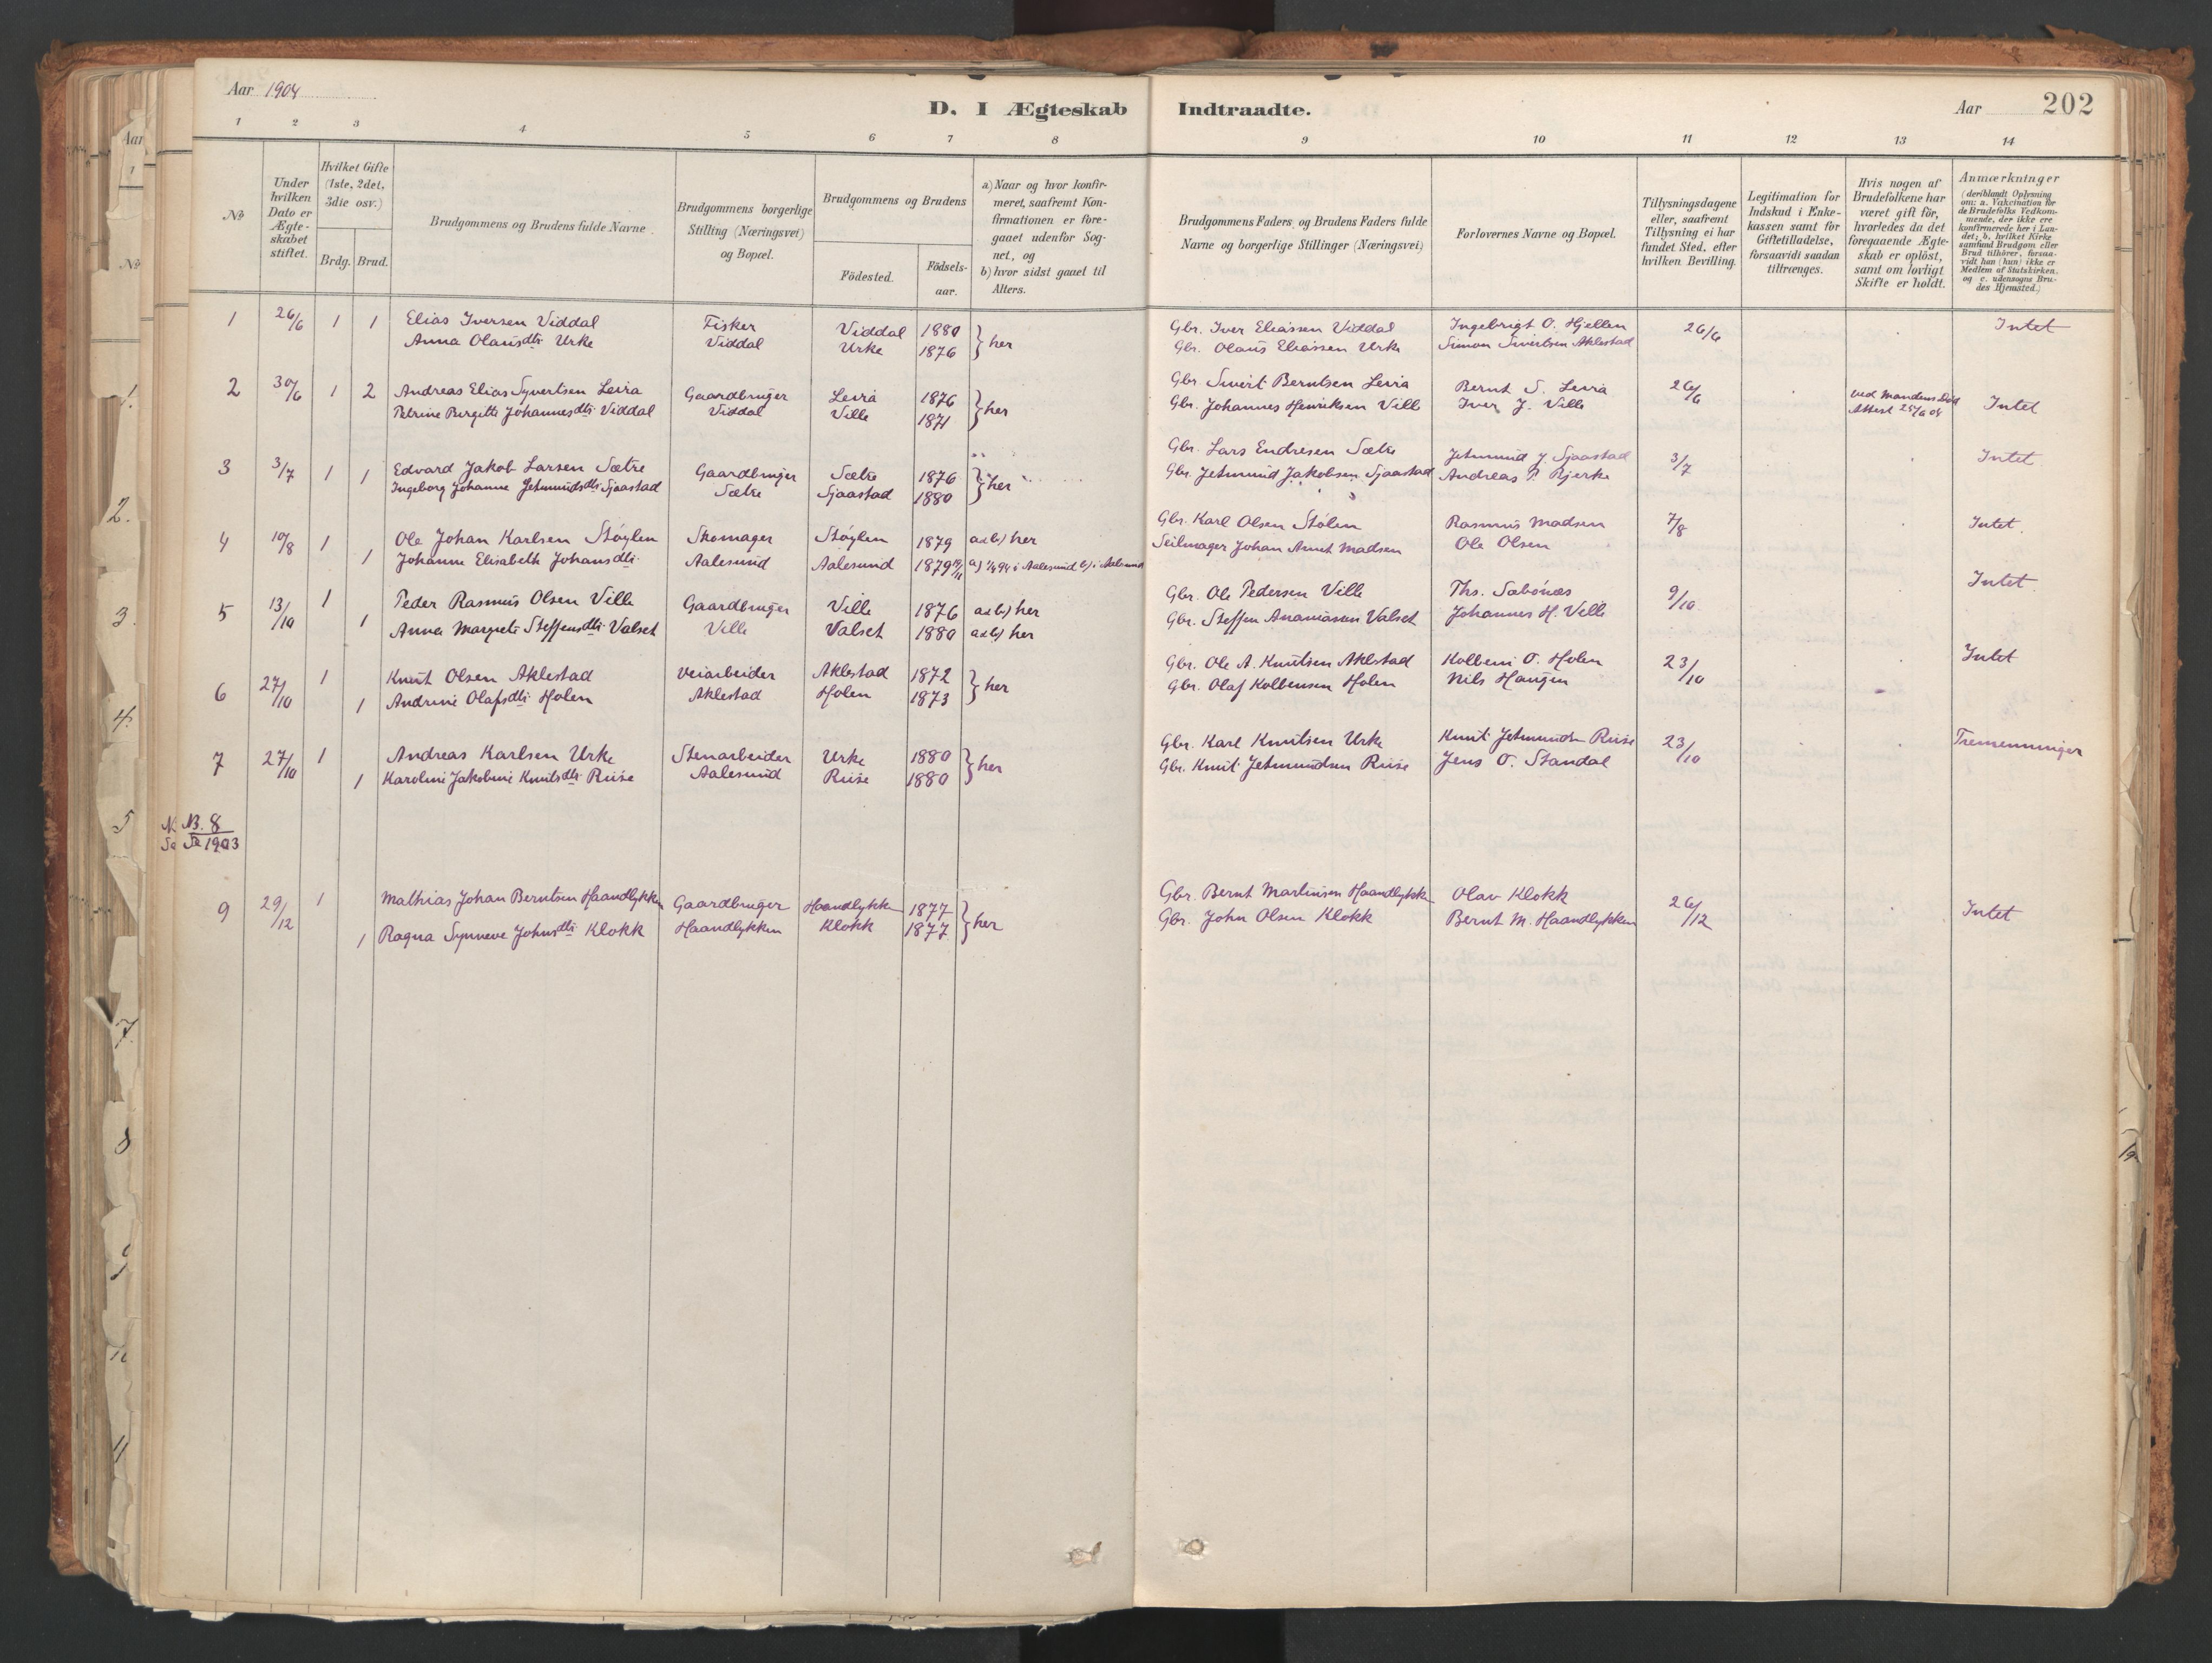 Aar 1904
D. I Ægteskab Indtraadte.
Aar 202
1 2 3 4 5 6 7 8 9 10 11 12 13 14
№
Under hvilken Dato er Ægteskabet stiftet.
Hvilket Gifte (1ste, 2det, 3die osv.)
Brdg. Brud.
Brudgommens og Brudens fulde Navne.
Brudgommens borgerlige Stilling (Næringsvei) og Bopæl.
Brudgommens og Brudens
Födested.
Födsels-aar.
a) Naar og hvor konfirmeret, saafremt Konfirmationen er foregaaet udenfor Sognet, og
b) hvor sidst gaaet til Alters.
Brudgommens Faders og Brudens Faders fulde Navne og borgerlige Stillinger (Næringsvei)
Forlovernes Navne og Bopæl.
Tillysningsdagene eller, saafremt Tillysning ei har fundet Sted, efter hvilken Bevilling.
Legitimation for Indskud i Enkekassen samt for Giftetilladelse, forsaavidt saadan tiltrænges.
Hvis nogen af Brudefolkene har været gift för, hvorledes da det foregaaende Ægteskab er oplöst, samt om lovligt Skifte er holdt.
Anmærkninger (deriblandt Oplysning om: a. Vakcination for de Brudefolks Vedkommende, der ikke ere konfirmerede her i Landet; b. hvilket Kirkesamfund Brudgom eller Brud tilhörer, forsaavidt han (hun) ikke er Medlem af Statskirken, og c. udensogns Brudes Hjemsted.)
1 26/6 1 1 Elias Iversen Viddal Fisker Viddal 1880 } her Gbr. Iver Eliassen Viddal Ingebrigt O. Hjellen 26/6 Intet
Anna Olausdtr Urke Viddal Urke 1876 Gbr. Olaus Eliassen Urke Simon Sivertsen Aklestad
2 30/6 1 2 Andreas Elias Syvertsen Leira Gaardbruger Leira 1876 } her Gbr. Sivert Berntsen Leira Bernt S. Leira 26/6 ved Mandens Död Intet
Petrine Birgitte Johannesdtr Viddal Viddal Ville 1871 Gbr. Johannes Henriksen Ville Iver J. Ville Attest 25/6 04
3 3/7 1 1 Edvard Jakob Larsen Sætre Gaardbruger Sætre 1876 } her Gbr. Lars Endresen Sætre Jetmund J Sjaastad 3/7 Intet
Ingeborg Johanne Jetmundsdtr Sjaastad Sætre Sjaastad 1880 Gbr. Jetmund Jakobsen Sjaastad Andreas P. Bjerke
4 10/8 1 Ole Johan Karlsen Støylen Skomager Støylen 1879 a&b) her Gbr. Karl Olsen Stølen Rasmus Madsen 7/8 Intet.
1 Johanne Elisabeth Johansdtr Aalesund Aalesund 1879 a) i Aalesund b) i Aalesund Seilmager Johan Arnt Madsen Ole Olsen
5 13/10 1 Peder Rasmus Olsen Ville Gaardbruger Ville 1876 a&b) her Gbr. Ole Pedersen Ville Ths. Sæbönæs 9/10 Intet
1 Anna Margrete Steffensdtr Valset Ville Valset 1880 a&b) her Gbr. Steffen Ananiassen Valset Johannes H. Ville
6 27/10 1 Knut Olsen Aklestad Veiarbeider Aklestad 1872 } her Gbr. Ole A. Knutsen Aklestad Kolbein O. Holen 23/10 Intet
1 Andrine Olafsdtr Holen Aklestad Holen 1873 Gbr. Olaf Kolbensen Holen Nils Haugen
7 27/10 1 Andreas Karlsen Urke Stenarbeider Urke 1880 } her Gbr. Karl Knutsen Urke Knut Jetmundsn Riise 23/10 Tremenninger
1 Karoline Jakobine Knutsdtr Riise Aalesund Riise 1880 Gbr. Knut Jetmundsen Riise Jens O. Standal
NB. 8
Se 1903
9 29/12 1 Mathias Johan Berntsen Haandlykken Gaardbruger Haandlykken 1877 } her Gbr. Bernt Martinsen Haandlykken Olav Klokk 26/12 Intet
1 Ragna Synneve Johnsdtr Klokk Haandlykken Klokk 1877 Gbr. John Olsen Klokk Bernt M. Haandlykken